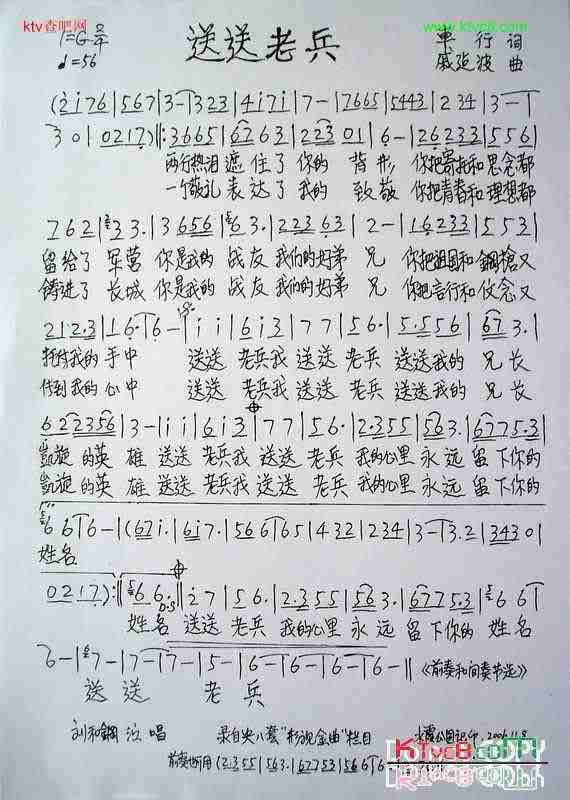 ktv查吧网
www.ktvc8.com
1=G 2/4
♩=56
送送老兵
单行 词
戚建波 曲
(2̇ i 7 6 | 5 6 7 | 3 - | 3 2 3 | 4 i 7 i | 7 - | 7 6 6 5 | 5 4 4 3 | 2 3 4 | 3 - |
3 0 | 0 2 1 7) |: 3 6 6 5 | 6 7 6 3 | 2 2 3 0 1 | 6 - | 2 6 2 3 3 | 5 5 6 |
两行热泪 遮住了 你的 背影 你把寄托和 思念都
一个敬礼 表达了 我的 致敬 你把青春和 理想都
7 6 2 | 3 3. | 3 6 5 6 | 6 3. | 2 2 3 6 3 | 2 - | 1 6 2 3 3 | 5 5 3 |
留给了 军营 你是我的 战友 我们的好弟 兄 你把祖国和 钢枪又
铸进了 长城 你是我的 战友 我们的好弟 兄 你把言行和 信念又
2 1 2. 3 | 1 6. | 6 - | i i | 6 i 3 | 7 7 | 5 6. | 5. 5 5 6 | 6 7 3. |
托付我的 手中 送送 老兵我 送送 老兵 送送我的 兄长
传到我的 心中 送送 老兵我 送送 老兵 送送我的 兄长
6 2 2 3 5 6 | 3 - | i i | 6 i 3 | 7 7 | 5 6. | 2. 3 5 5 | 5 6 3. | 6 7 7 5. 3 |
凯旋的英 雄 送送 老兵我 送送 老兵 我的心里 永远 留下你的
凯旋的英 雄 送送 老兵我 送送 老兵 我的心里 永远 留下你的
6 6 | 6 - | (6 7 i. | 6 i 7. | 5 6 6 | 6 5 | 4 3 2 | 2 3 4 | 3 - | 3 3. 2 | 3 4 3 0 |
姓名
0 2 1 7) :| 6 6. D.S | i 7 | 5 6. | 2. 3 5 5 | 5 6 3. | 6 7 7 5. 3 | 6 6 |
姓名 送送 老兵 我的心里 永远 留下你的 姓名
6 - | 7 - | 7 - | 7 - | 5 - | 6 - | 6 - | 6 - | 6 - || 《前奏和间奏节选》
送 送 老 兵
刘和刚 演唱 录自央八套"影视金曲"栏目
前奏也可用 (2. 3 5 5 | 5 6 3. | 6 7 7 5 3 | 5 6 6 6
KTVC8.COM